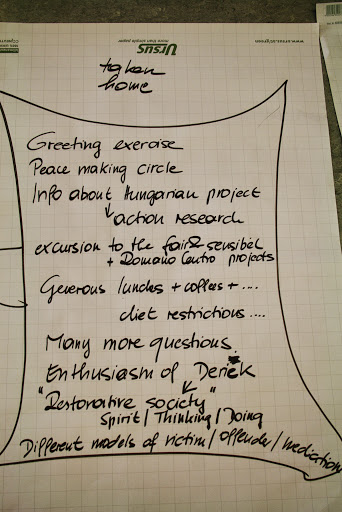 www.ursus.eu/green
Ursus
more than simple paper
taken
home
Greeting exercise
Peace making circle
Info about Hungarian project
action research
excursion to the fair & sensibel
+ Romano Centro projects
Generous lunches + coffees + ....
diet restrictions ....
Many more questions
Enthusiasm of Derick
"Restorative society"
Spirit / Thinking / Doing
Different models of victim / offender / mediation